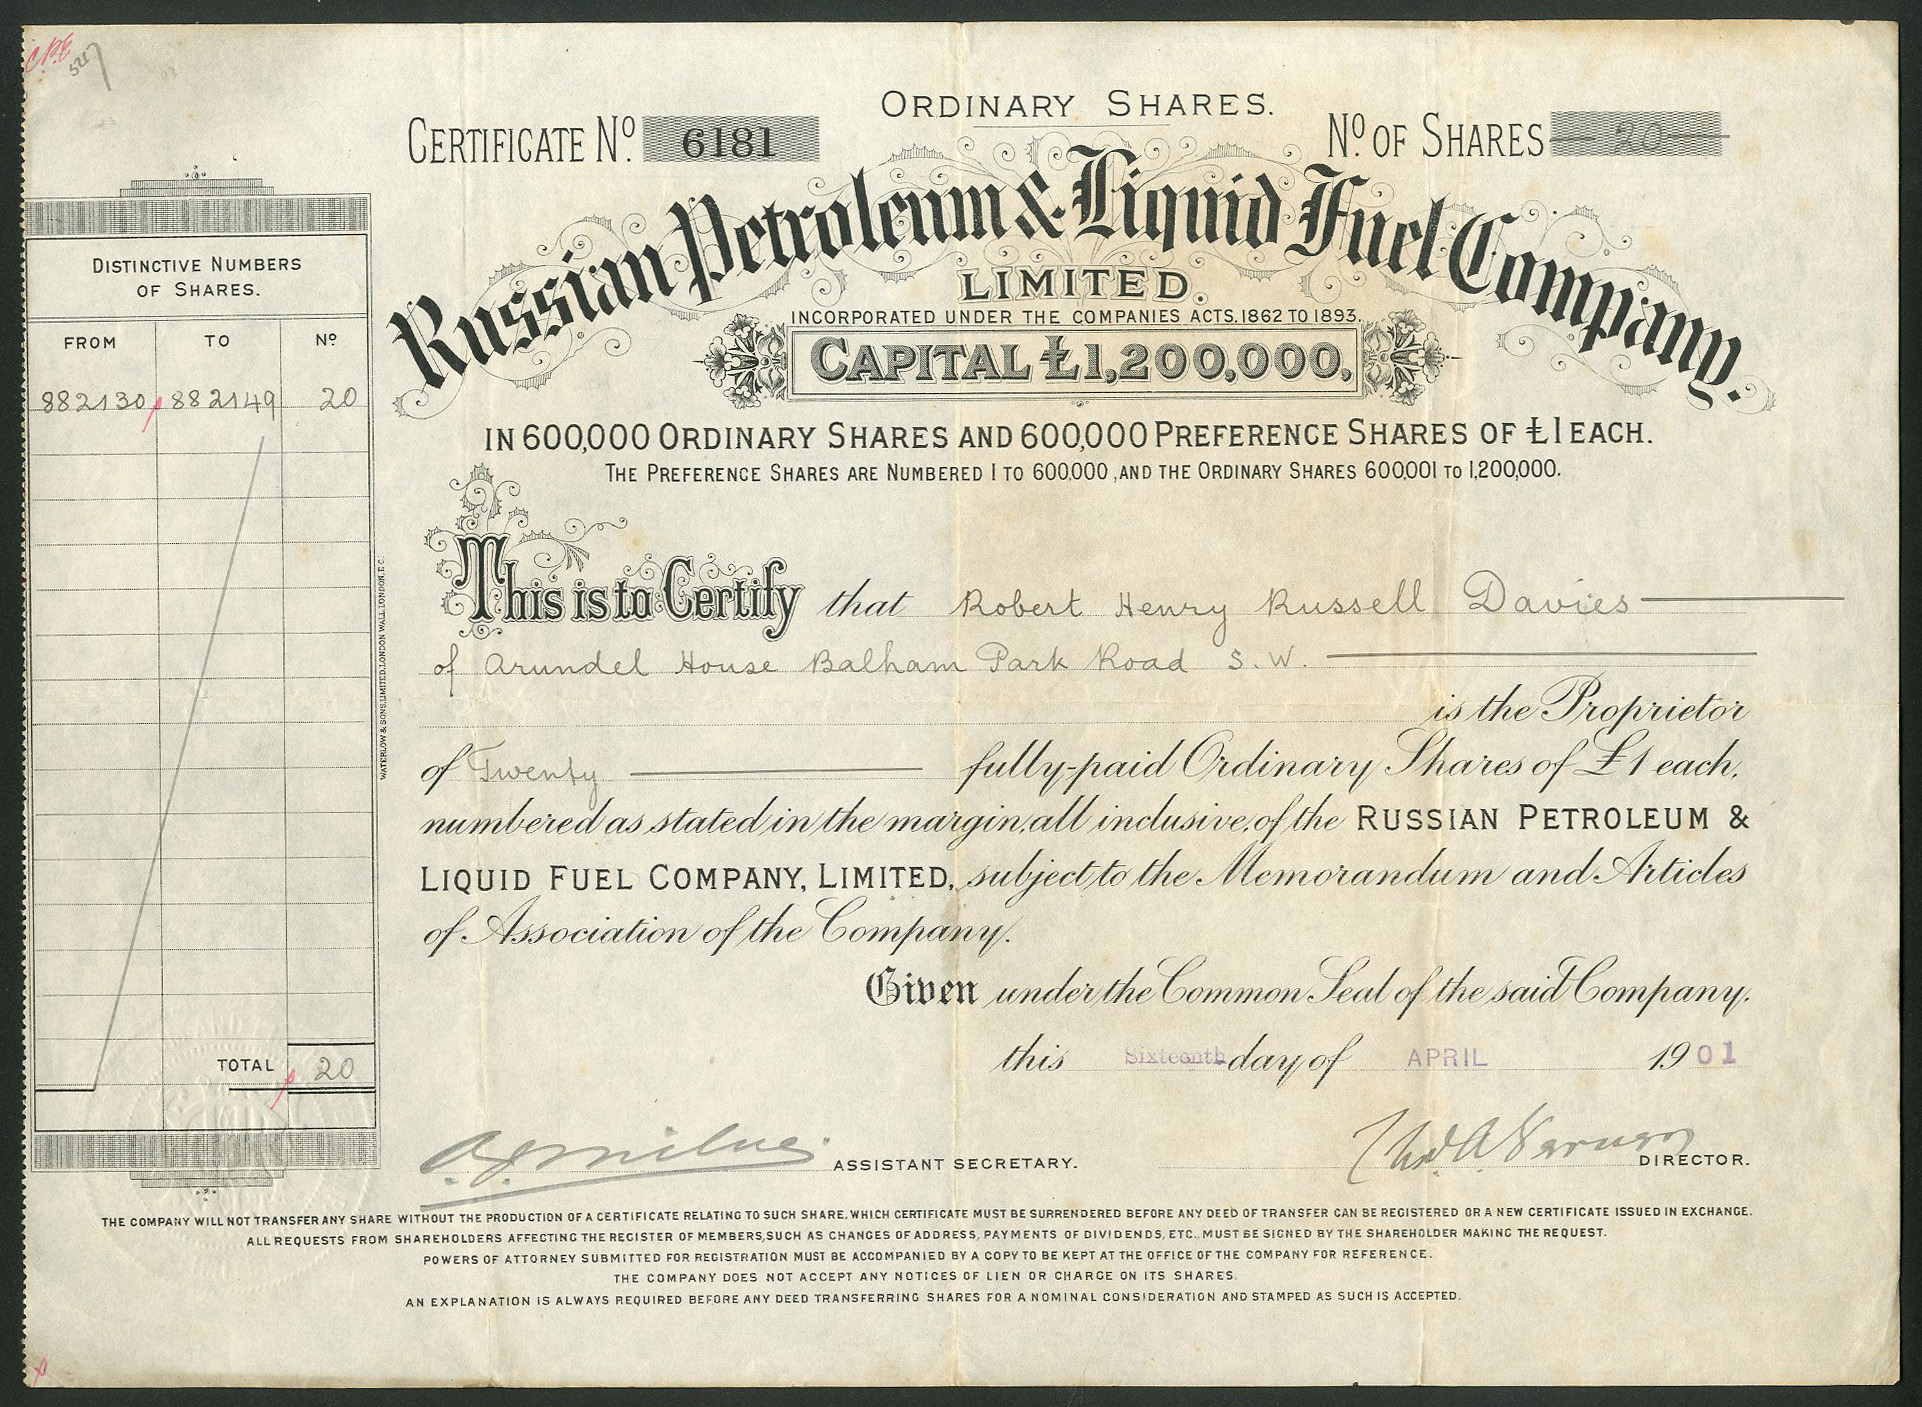 C.P.E
527
ORDINARY SHARES.
CERTIFICATE No. 6181
No. OF SHARES 20
Russian Petroleum & Liquid Fuel Company.
LIMITED.
INCORPORATED UNDER THE COMPANIES ACTS, 1862 TO 1893.
CAPITAL £1,200,000,
IN 600,000 ORDINARY SHARES AND 600,000 PREFERENCE SHARES OF £1 EACH.
THE PREFERENCE SHARES ARE NUMBERED 1 TO 600,000, AND THE ORDINARY SHARES 600,001 TO 1,200,000.
DISTINCTIVE NUMBERS
OF SHARES.
FROM TO No
882130 882149 20
TOTAL 20
WATERLOW & SONS, LIMITED, LONDON WALL, LONDON, E.C.
This is to Certify that Robert Henry Russell Davies
of Arundel House Balham Park Road S.W.
is the Proprietor
of Twenty fully-paid Ordinary Shares of £1 each,
numbered as stated in the margin, all inclusive, of the RUSSIAN PETROLEUM &
LIQUID FUEL COMPANY, LIMITED, subject to the Memorandum and Articles
of Association of the Company.
Given under the Common Seal of the said Company,
this Sixteenth day of APRIL 1901
ASSISTANT SECRETARY.
DIRECTOR.
THE COMPANY WILL NOT TRANSFER ANY SHARE WITHOUT THE PRODUCTION OF A CERTIFICATE RELATING TO SUCH SHARE, WHICH CERTIFICATE MUST BE SURRENDERED BEFORE ANY DEED OF TRANSFER CAN BE REGISTERED OR A NEW CERTIFICATE ISSUED IN EXCHANGE.
ALL REQUESTS FROM SHAREHOLDERS AFFECTING THE REGISTER OF MEMBERS, SUCH AS CHANGES OF ADDRESS, PAYMENTS OF DIVIDENDS, ETC., MUST BE SIGNED BY THE SHAREHOLDER MAKING THE REQUEST.
POWERS OF ATTORNEY SUBMITTED FOR REGISTRATION MUST BE ACCOMPANIED BY A COPY TO BE KEPT AT THE OFFICE OF THE COMPANY FOR REFERENCE.
THE COMPANY DOES NOT ACCEPT ANY NOTICES OF LIEN OR CHARGE ON ITS SHARES.
AN EXPLANATION IS ALWAYS REQUIRED BEFORE ANY DEED TRANSFERRING SHARES FOR A NOMINAL CONSIDERATION AND STAMPED AS SUCH IS ACCEPTED.